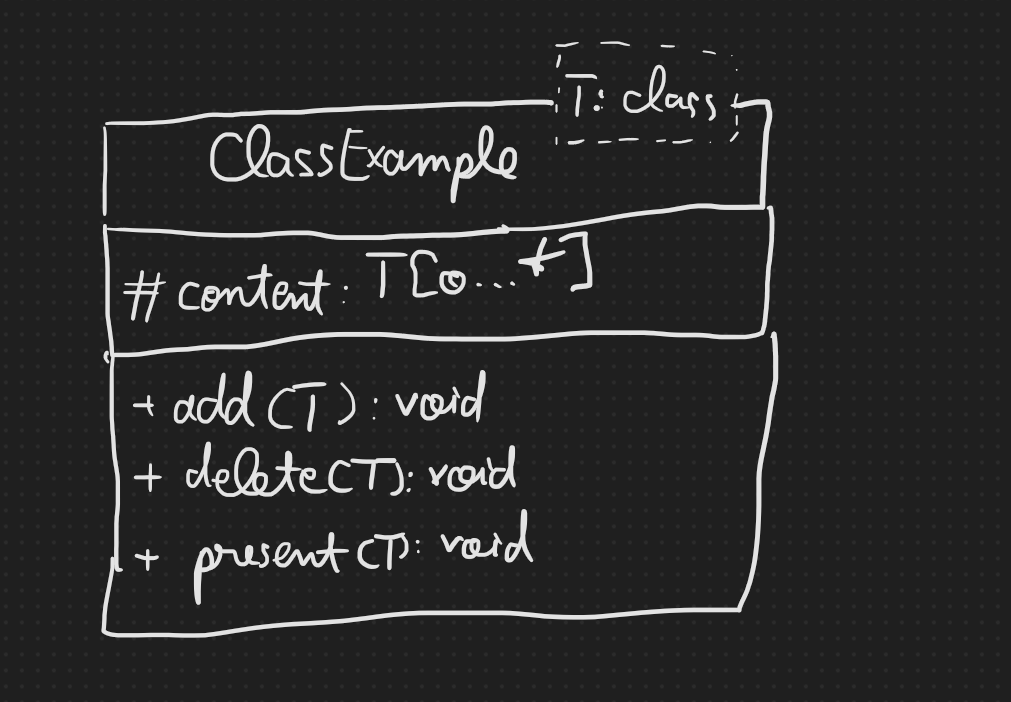 T: class
ClassExample
# content: T[0...*]
+ add(T): void
+ delete(T): void
+ present(T): void